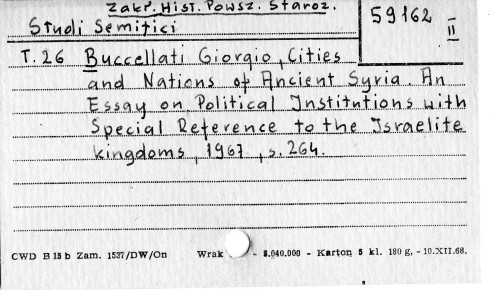 Zakł. Hist. Powsz. Staroż.
59162
II
Studi Semitici
T. 26 Buccellati Giorgio, Cities
and Nations of Ancient Syria. An
Essay on Political Institutions with
Special Reference to the Israelite
kingdoms, 1967, s. 264.
CWD B 15 b Zam. 1537/DW/On Wrak - 5.040.000 - Karton 5 kl. 180 g, - 10.XII.68.